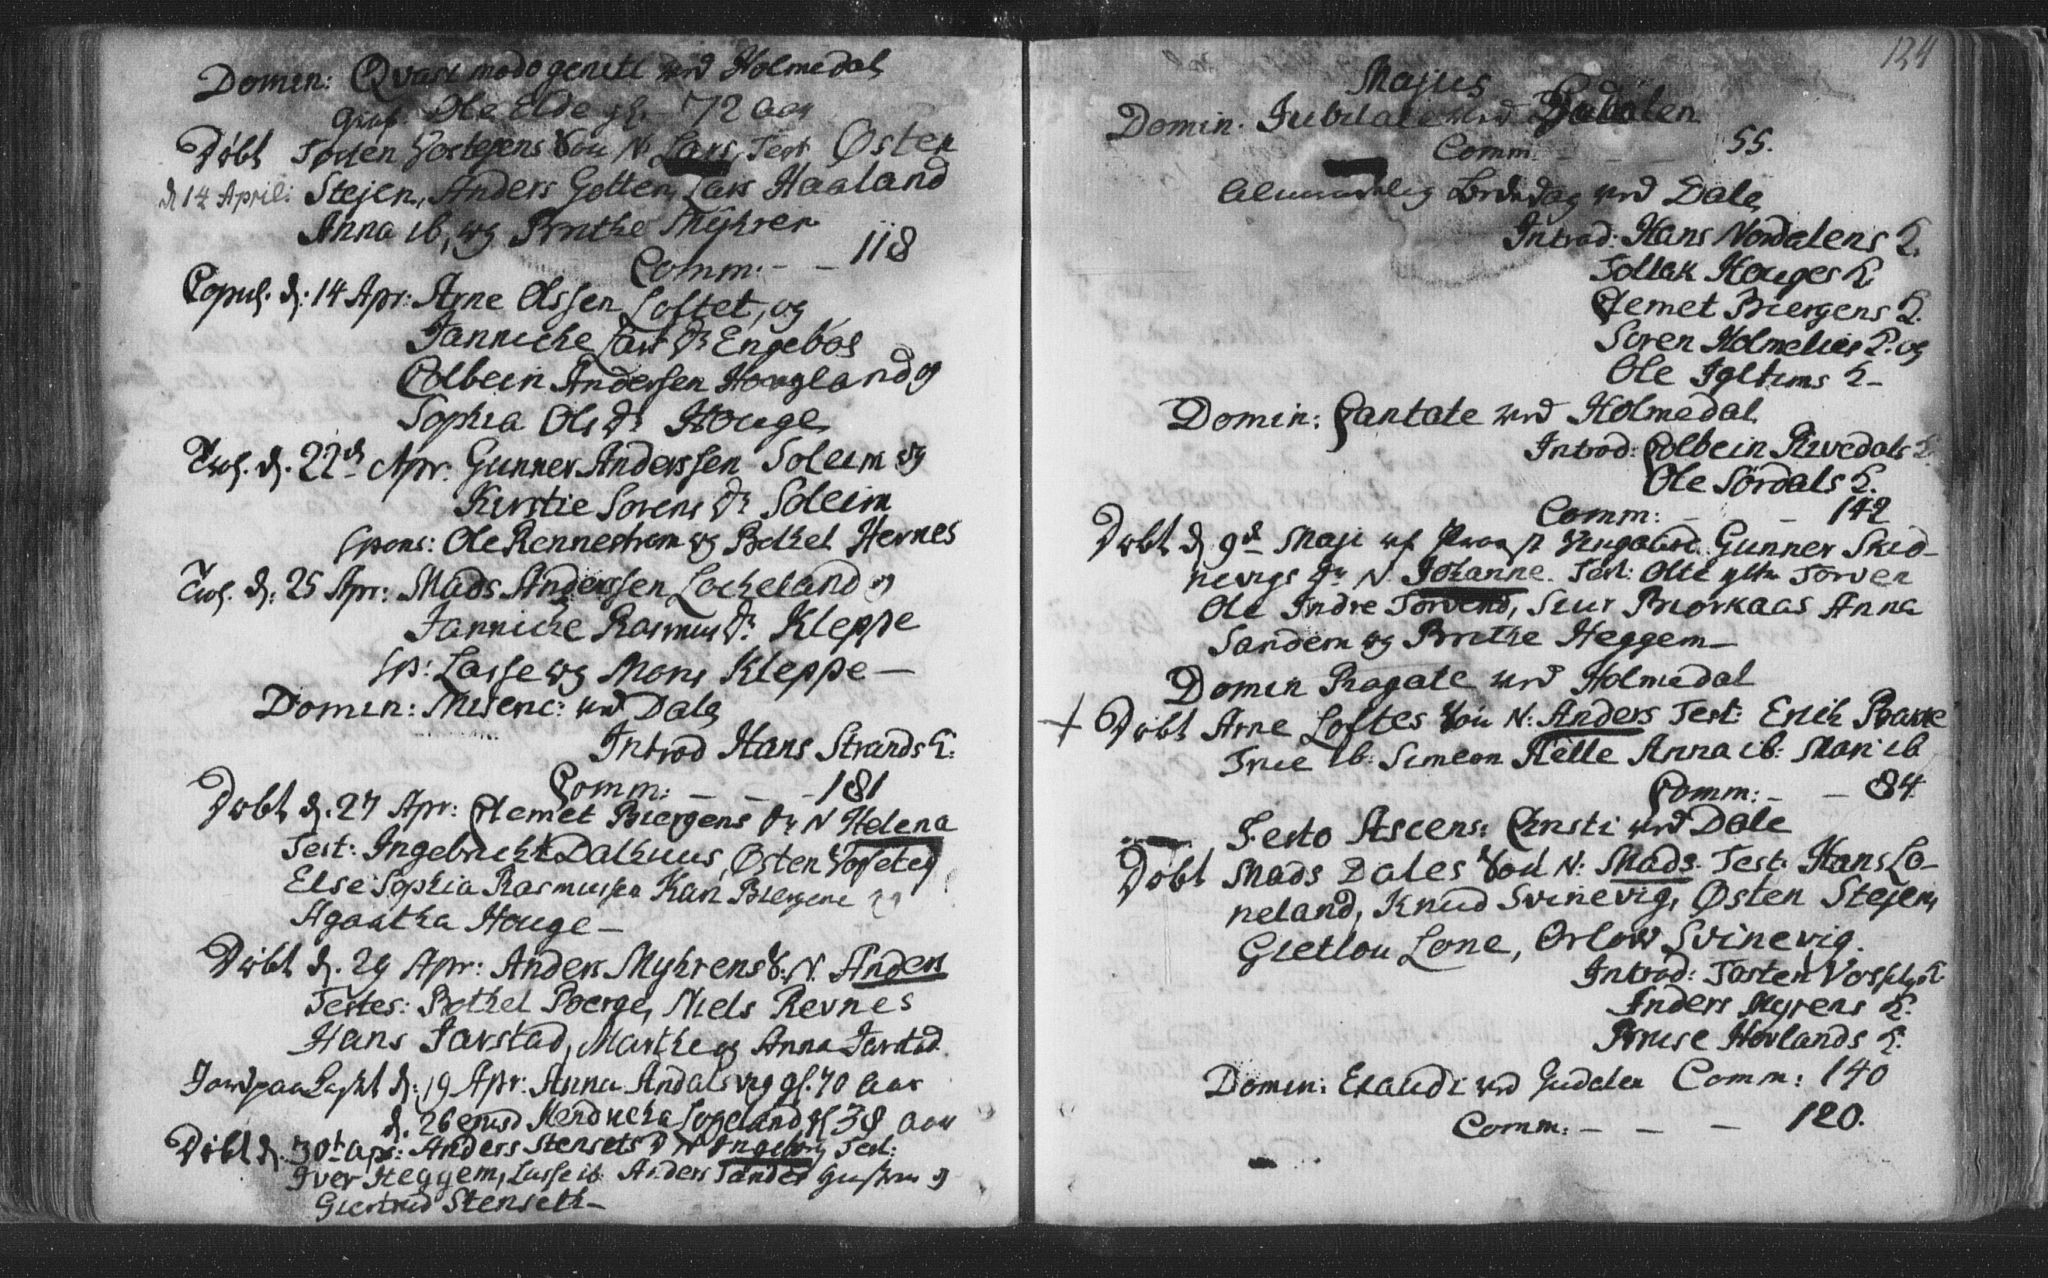 Domin: Qvasi modo geniti ved Holmedal
Graf: Ole Elde gl. 72 aar
Døbt Tosten Søn N: Lars, Test Østen
d 14 April: Stejen, Anders Gotten, Lars Haaland
Anna ib, og Brithe Myhren
Comm: - - 118
Copul. d. 14 Apr: Arne Olssen Loftet, og
Jannicke Lars Dr Engebøs
Colbein Anderssen Hougland og
Sophia Ols Dr Houge
Trol. d. 22d Apr. Gunner Anderssen Soleim og
Kirstie Sørens Dr Soleim
Spons: Ole Rennestrøm og Bothel Hernes
Trol. d. 25 Apr: Mads Anderssen Lockeland og
Jannicke Rasmus Dr Kleppe
Sp: Lasse og Mons Kleppe -
Domin: Miseric: ved Dale
Introd Hans Strands K:
Comm: - - - 181
Døbt d. 27 Apr: Clemet Biergens Dr N Helena
Test: Ingebricht Dalhuus, Østen
Else Sophia Rasmussen Kari Biergene og
Agaatha Houge -
Døbt d. 29 Apr: Anders Myhrens S. N. Anders
Testes: Bothel Boerge, Niels Revnes
Hans Jarstad, Marthe og Anna Jarstad
Jordpaakast d: 19 Apr: Anna Andalsvig gl. 70 aar
d. 26 ejusd Lopeland gl 38 aar
Døbt d. 30t apr: Anders Stensets D N Ingeborg Test:
Iver Heggem, Lasse ib Anders Tander og
Giertrud Stenseth -
124
Majus
Domin: Jubilate ved Gudalen
Comm: - - - 55.
Almindelig Bededag ved Dale
Introd: Hans Nordalens K.
Tollak Houges K
Clemet Biergens K.
Søren Holmelies K. og
Ole Igltims K -
Domin: Cantate ved Holmedal
Introd: Colbein Rivedals K.
Ole Sørdals K.
Comm: - - 142
Døbt d 9d Maji af Gunner Skid-
nevigs Dr N Johanne. Test: Torven
Ole Indre Torvend, Siur Biørkaas Anna
Sandem og Brithe Heggem -
Domin Rogate ved Holmedal
+ Døbt Arne Loftes Søn N: Anders Test: Erich
ib: Simeon Helle Anna ib: Mari ib
Comm: - - 84.
Festo Ascens: Christi ved Dale
Døbt Mads Dales Søn N: Mads. Test: Hans Lo-
neland, Knud Svinevig, Østen Stejen,
Gietlou Lone, Orlow Svinevig.
Introd: Tosten K.
Anders Myrens K.
Bruse Hovlands K.
Domin: Exaudi ved Gudalen Comm: 140
Comm: - - - 120.